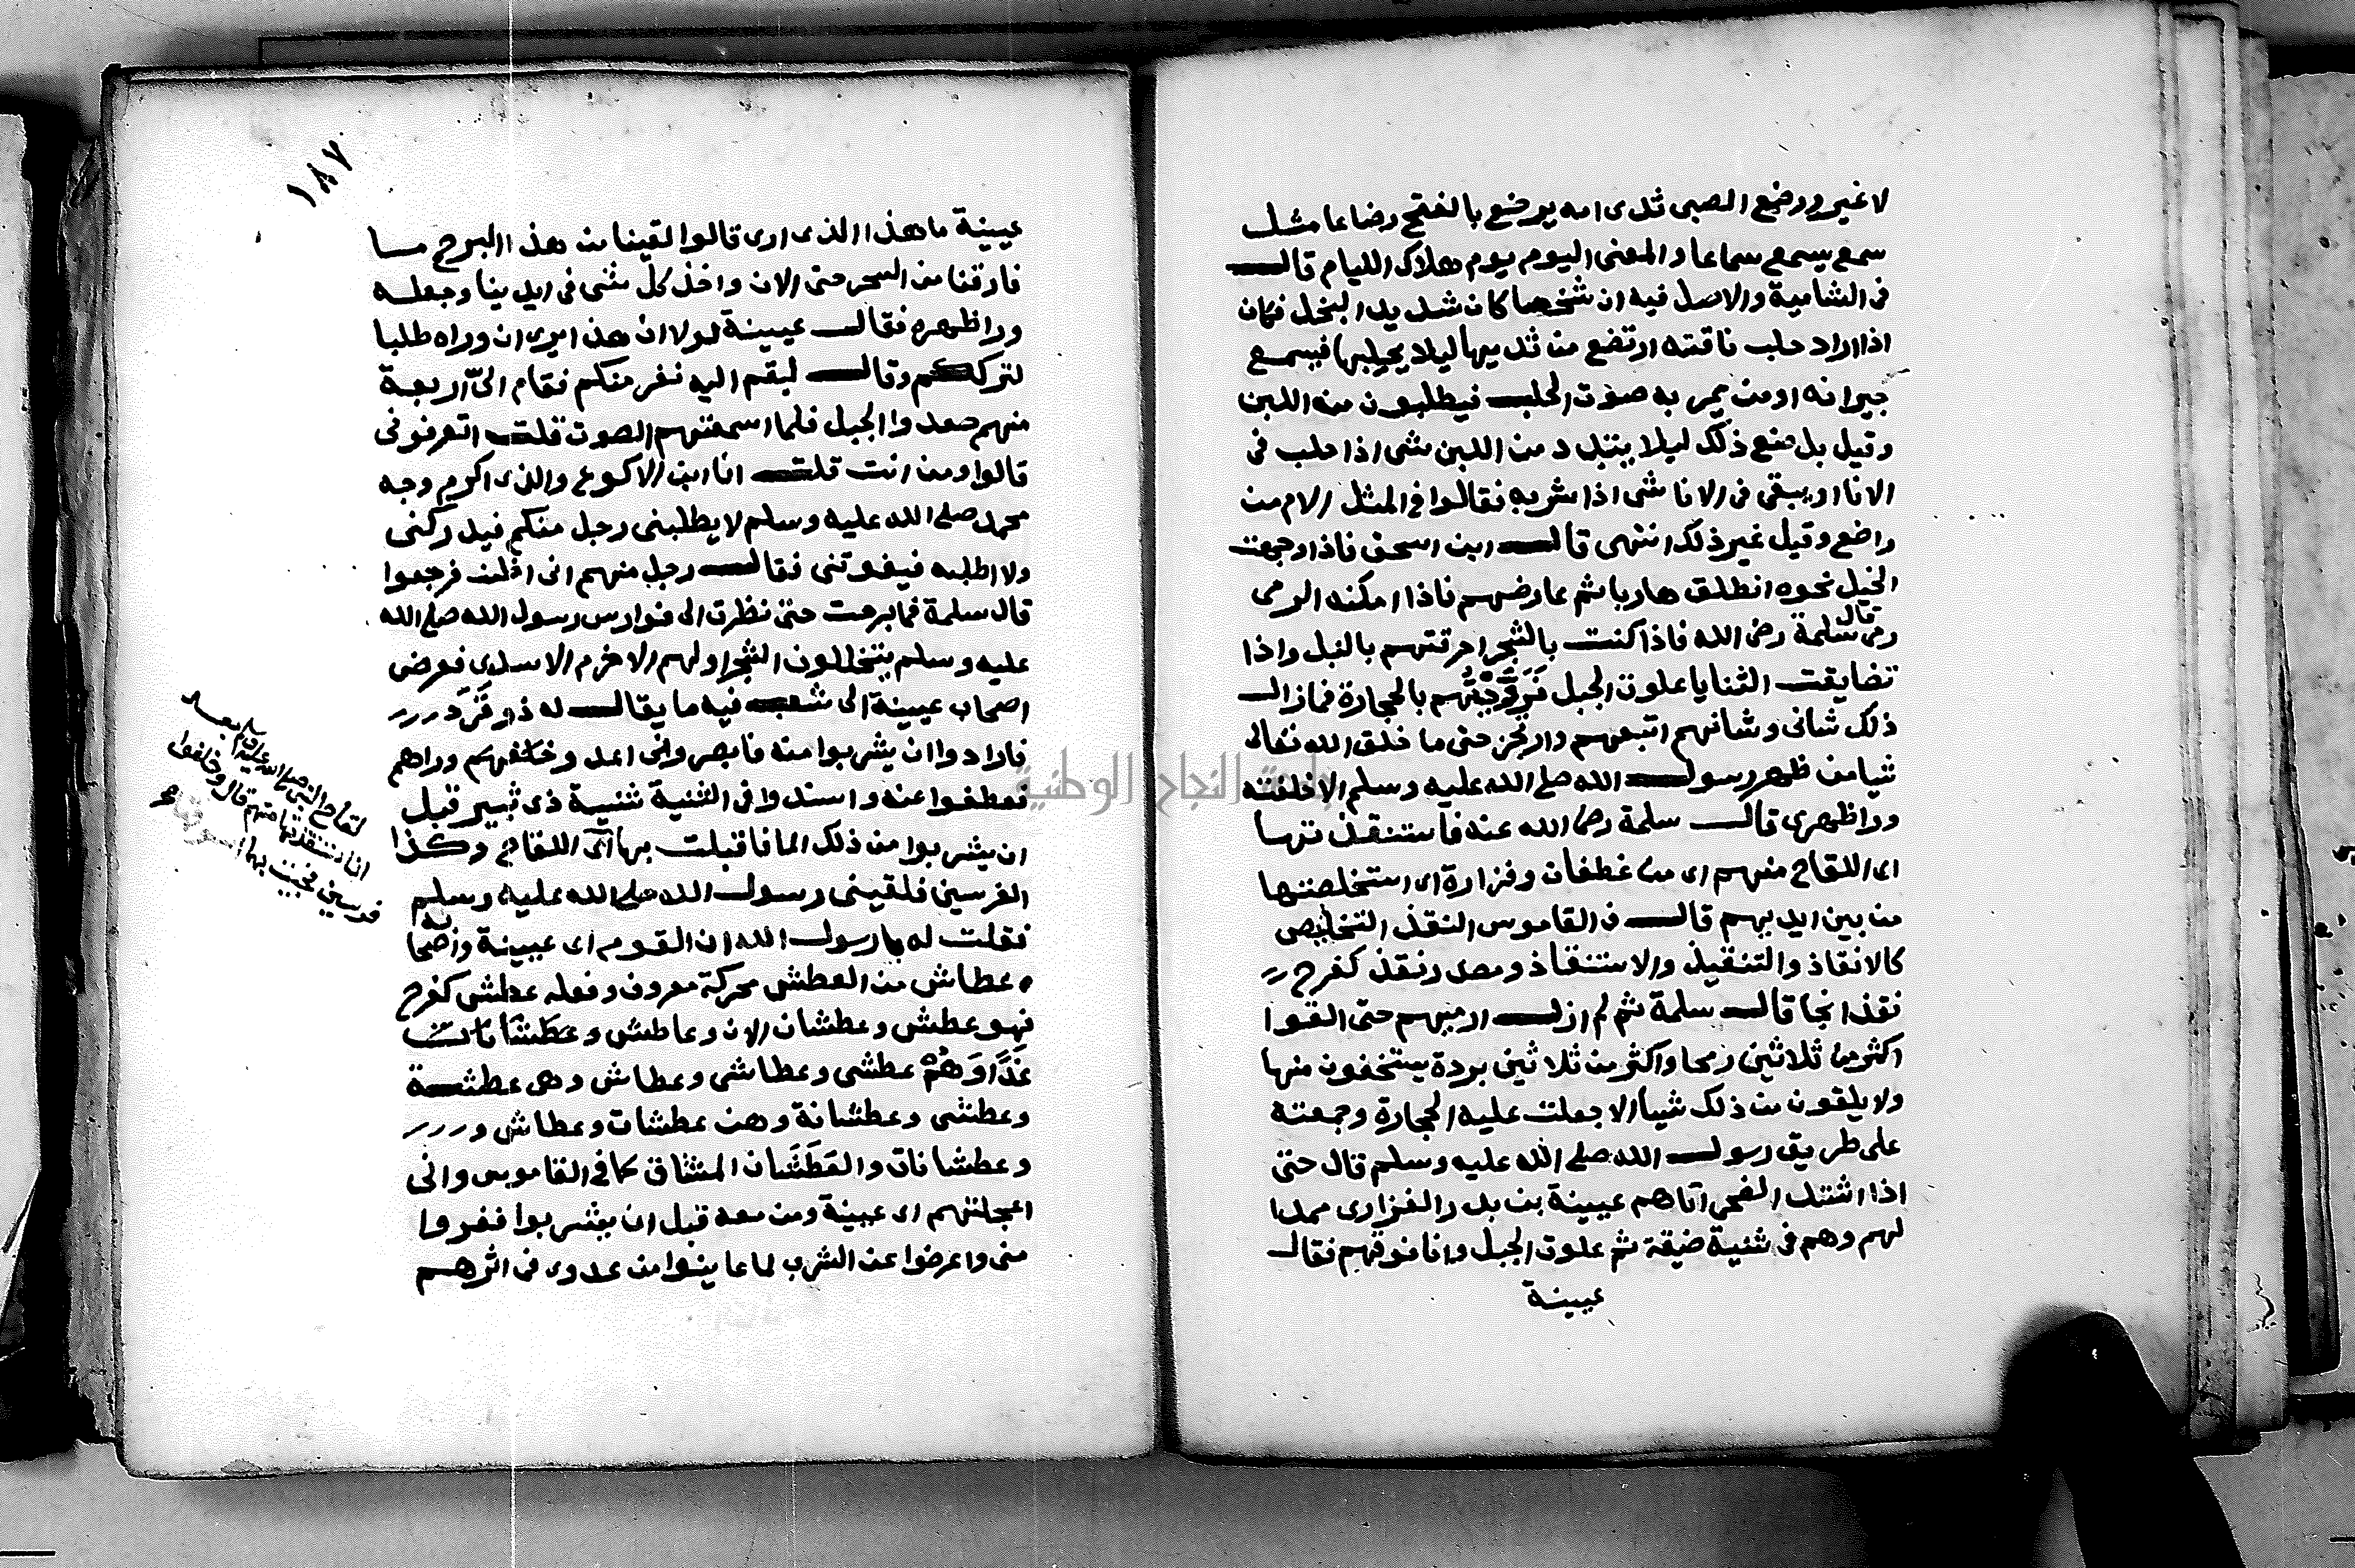 لا غير ورضع الصبى ثدى امه يرضع بالفتح رضاعا مثل
سمع يسمع سماعا والمعنى اليوم يوم هلاك الليام قال
فى الشامية والاصل فيه ان شخصا كان شديد البخل فكان
اذا اراد حلب ناقته ارتضع من ثديها ليلا يحلبها فيسمع
جيرانه اومن يمر به صوت الحلب فيطلبون منه اللبن
وقيل بل صنع ذلك ليلا يتبدد من اللبن شى اذا حلب فى
الانا او يبقى فى الانا شى اذا شربه فقالوا فى المثل الام من
راضع وقيل غير ذلك انتهى قال ابن اسحق فاذا وجهت
الخيل نحوه انطلق هاربا ثم عارضهم فاذا امكنه الرمى
رمى قال سلمة رضى الله فاذا كنت بالشجر احرقتهم بالنبل واذا
تضايقت الثنايا علوت الجبل فرديتهم بالحجارة فمازال
ذلك شانى وشانهم اتبعهم وارتجز حتى ما خلق الله تعالى
شيا من ظهر رسول الله صلى الله عليه وسلم الا خلفته
ورا ظهرى قال سلمة رضى الله عنه فاستنقذتها
اى اللقاح منهم اى من غطفان وفزارة اى استخلصتها
من بين ايديهم قال فى القاموس النقذ التخليص
كالانقاذ والتنقيذ والاستنقاذ ومصدر نقذ كفرح
نقذا نجا قال سلمة ثم لم ازل ارميهم حتى القوا
اكثر من ثلاثين رمحا واكثر من ثلاثين بردة يستخفون منها
ولا يلقون من ذلك شيا الا جعلت عليه الحجارة وجمعته
على طريق رسول الله صلى الله عليه وسلم قال حتى
اذا اشتد الضحى اتاهم عيينة بن بدر الفزارى ممدا
لهم وهم فى ثنية ضيقة ثم علوت الجبل وانا فوقهم فقال
عيينة
١٨٧
عيينة ما هذا الذى ارى قالوا لقينا من هذا البرح ما
فارقنا من السحر حتى الان واخذ كل شى فى ايدينا وجعله
ورا ظهره فقال عيينة لولا ان هذا يرى ان وراه طلبا
لترككم وقال ليقم اليه نفر منكم فقام الىّ اربعة
منهم صعدوا الجبل فلما اسمعتهم الصوت قلت اتعرفونى
قالوا ومن انت قلت انا ابن الاكوع والذى اكرم وجه
محمد صلى الله عليه وسلم لا يطلبنى رجل منكم فيدركنى
ولا اطلبه فيفوتنى فقال رجل منهم انى اظن فرجعوا
قال سلمة فما برحت حتى نظرت الى فوارس رسول الله صلى الله
عليه وسلم يتخللون الشجر اولهم الاخرم الاسدى فعرض
اصحاب عيينة الى شعب فيه ما يقال له ذو قَرَد
فارادوا ان يشربوا منه فابصرونى اعدو خلفهم وراهم
فعطفوا عنه واسندوا فى الثنية ثنية ذى ثبير قبل
ان يشربوا من ذلك الما فاقبلت بها اى اللقاح وكذا
الفرسين فلقينى رسول الله صلى الله عليه وسلم
فقلت له يا رسول الله ان القوم اى عيينة واصحابه
عطاش من العطش محركة معروف وفعله عطش كفرح
فهو عطش وعطشان الان وعاطش
غَدًا وَهُمْ عطشى وعطاشى وعطاش وهى عطشة
وعطشى وعطشانة وهن عطشات وعطاش و
وعطشانات والعَطشان المشتاق كما فى القاموس وانى
اعجلتهم اى عيينة ومن معه قبل ان يشربوا ففروا
منى واعرضوا عن الشرب لما عاينوا من عدوى فى اثرهم
لقاح النبى صلى الله عليه
انا استنقذتها منهم قال وخلفوا
فرسين فجيت بها
جامعة النجاح الوطنية